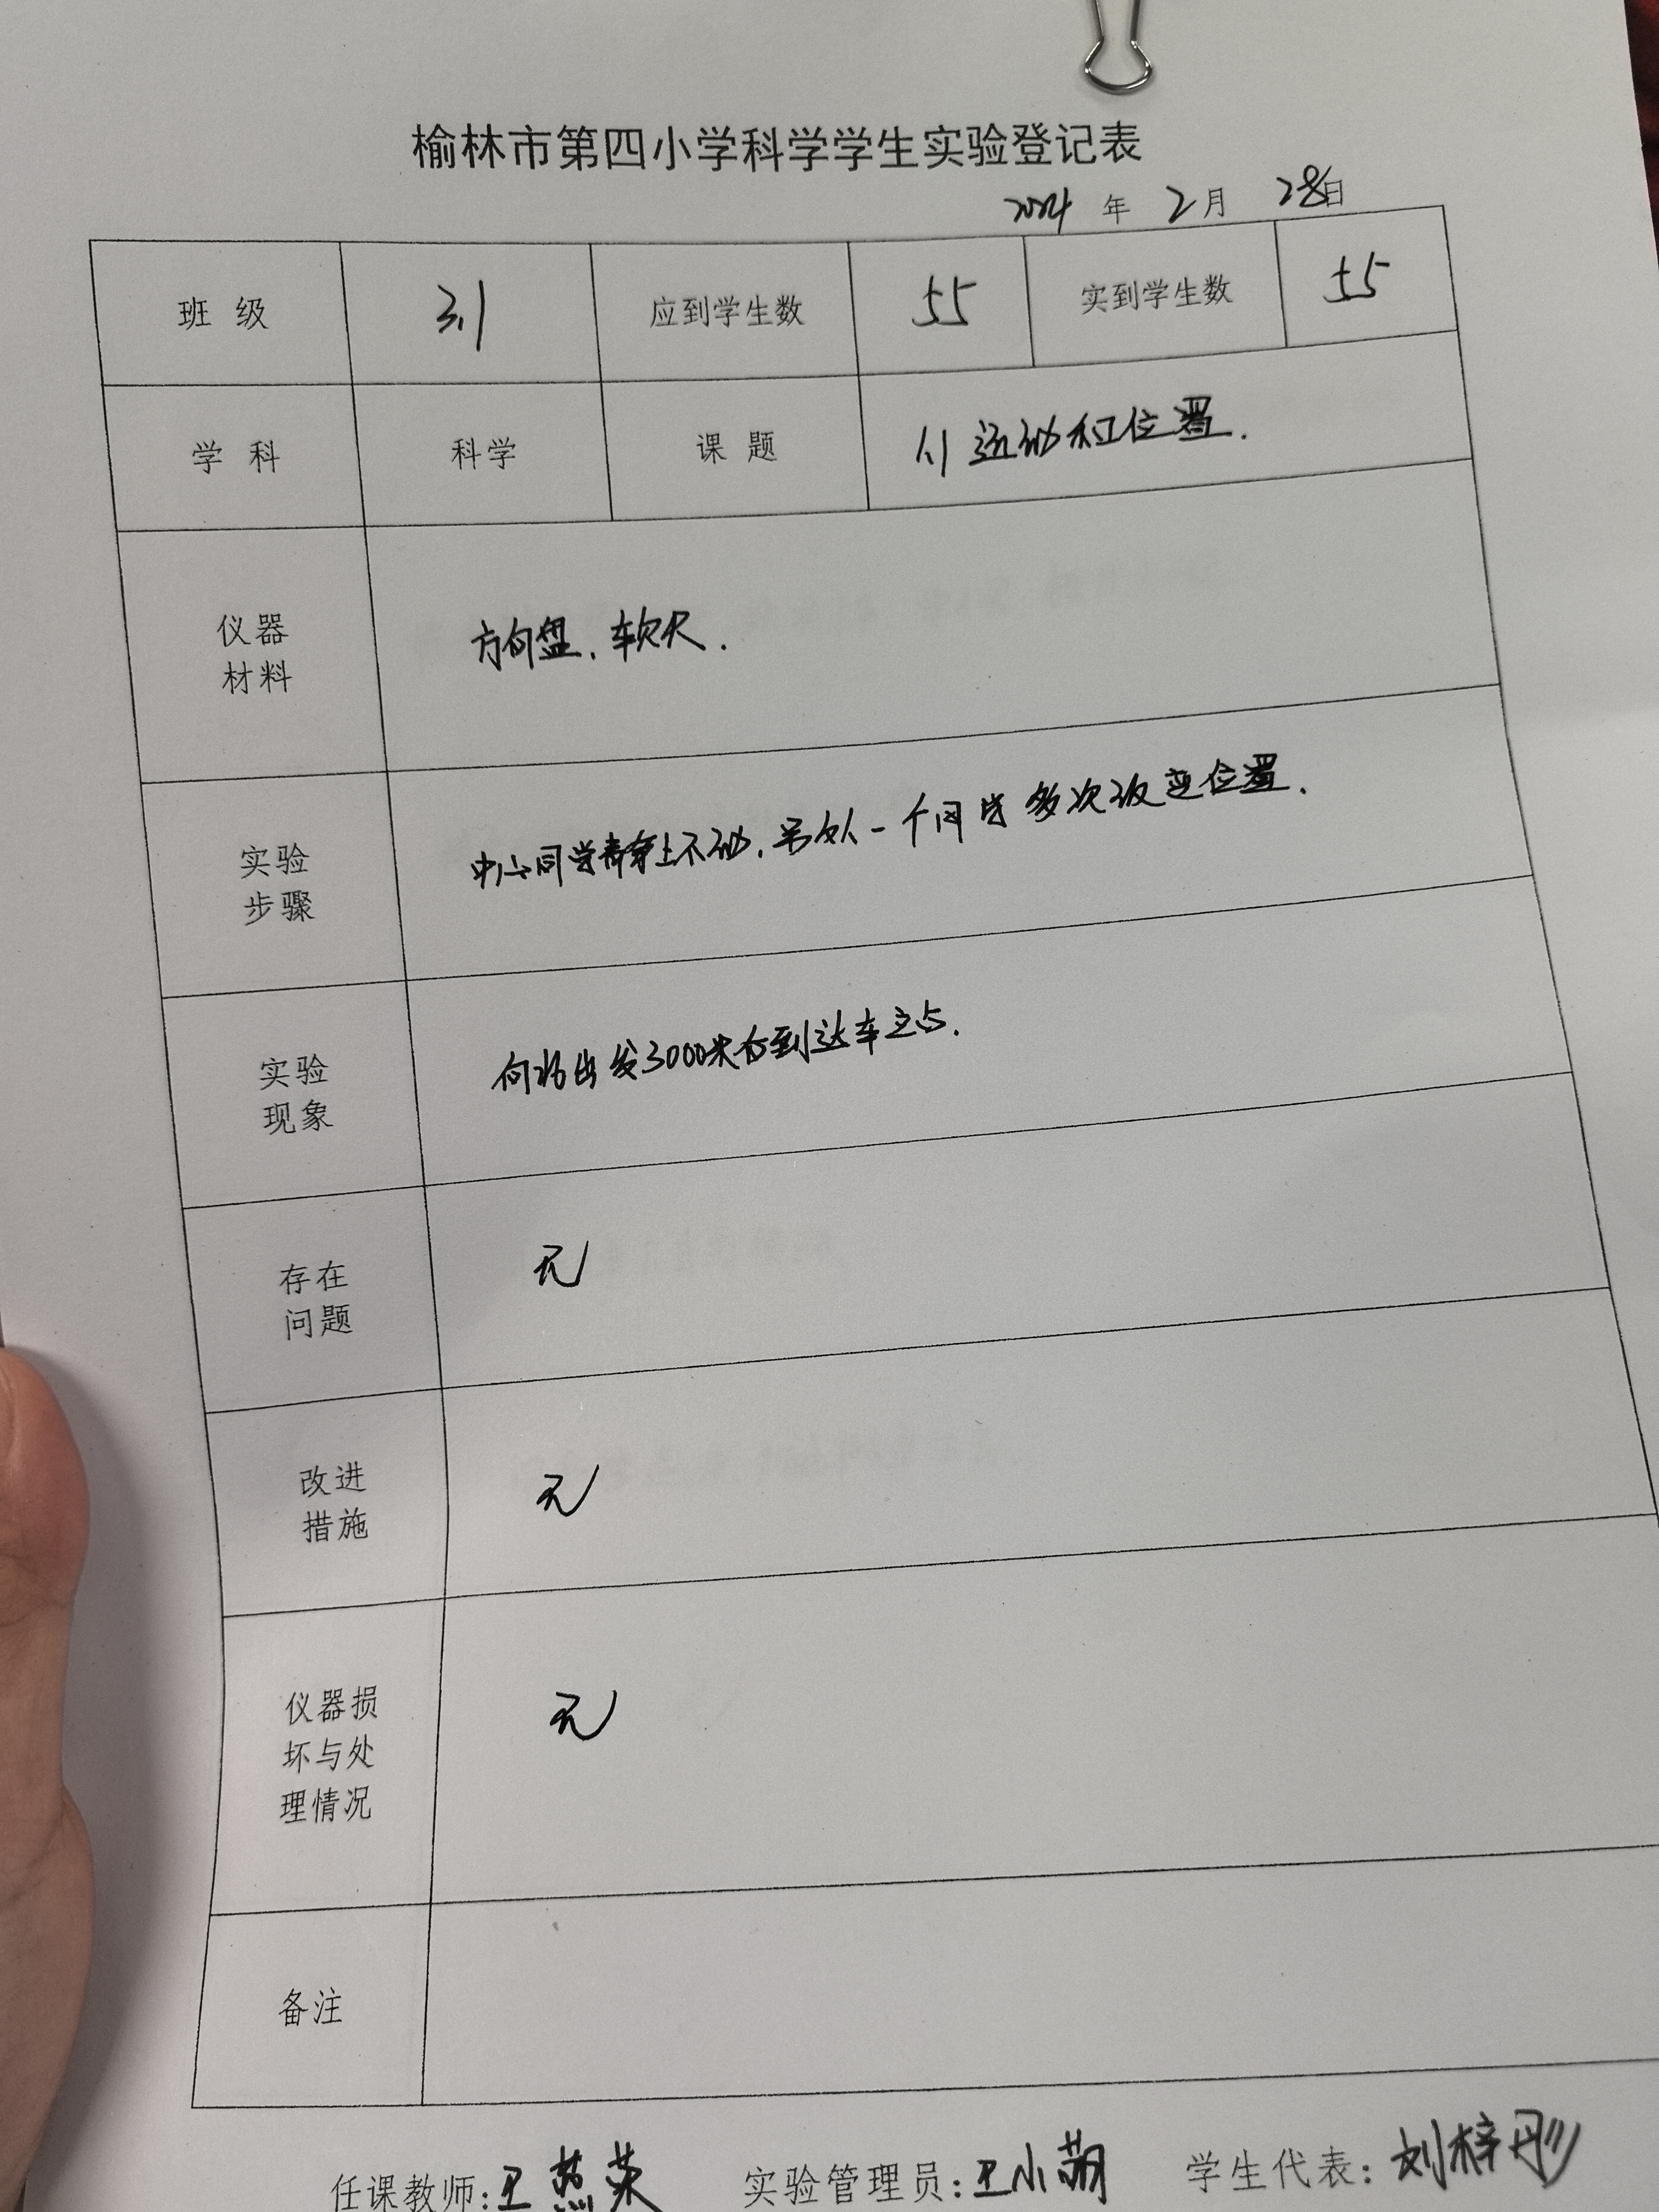 榆林市第四小学科学学生实验登记表
2024 年 2 月 28 日
班 级 3.1 应到学生数 55 实到学生数 55
学 科 科学 课 题 1.1 运动和位置.
仪器
材料
方向盘、软尺.
实验
步骤
中心同学静拿上不动,另外一个同学多次改变位置.
实验
现象
向 出发3000米后到达车立占.
存在
问题
无
改进
措施
无
仪器损
坏与处
理情况
无
备注
任课教师:王燕荣 实验管理员:王小萌 学生代表:刘梓彤